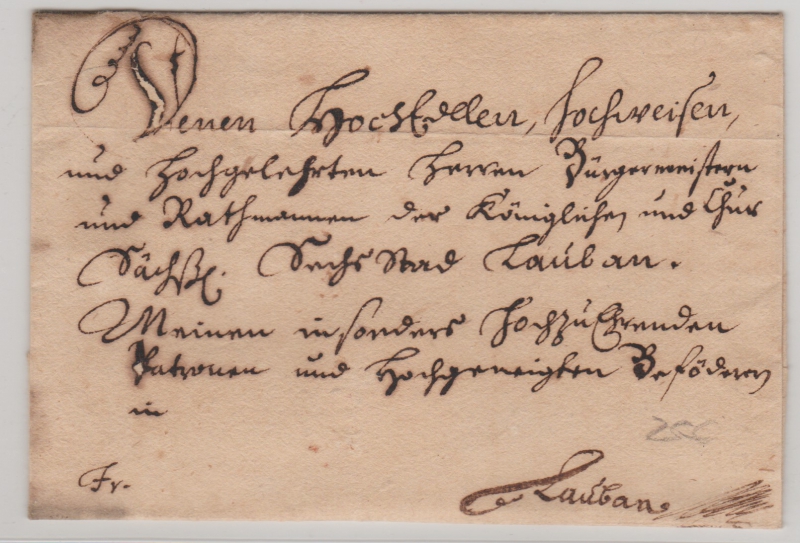 Denen HochEdlen, Hochweisen,
und Hochgelehrten Herren Bürgermeistern
und Rathmannen der Königlichen und Chur
Sächßl. Sechs Stad Lauban.
Meinen insonders HochzuEhrenden
Patronen und Hochgeneigten Beföderern
in
Fr.
Lauban.